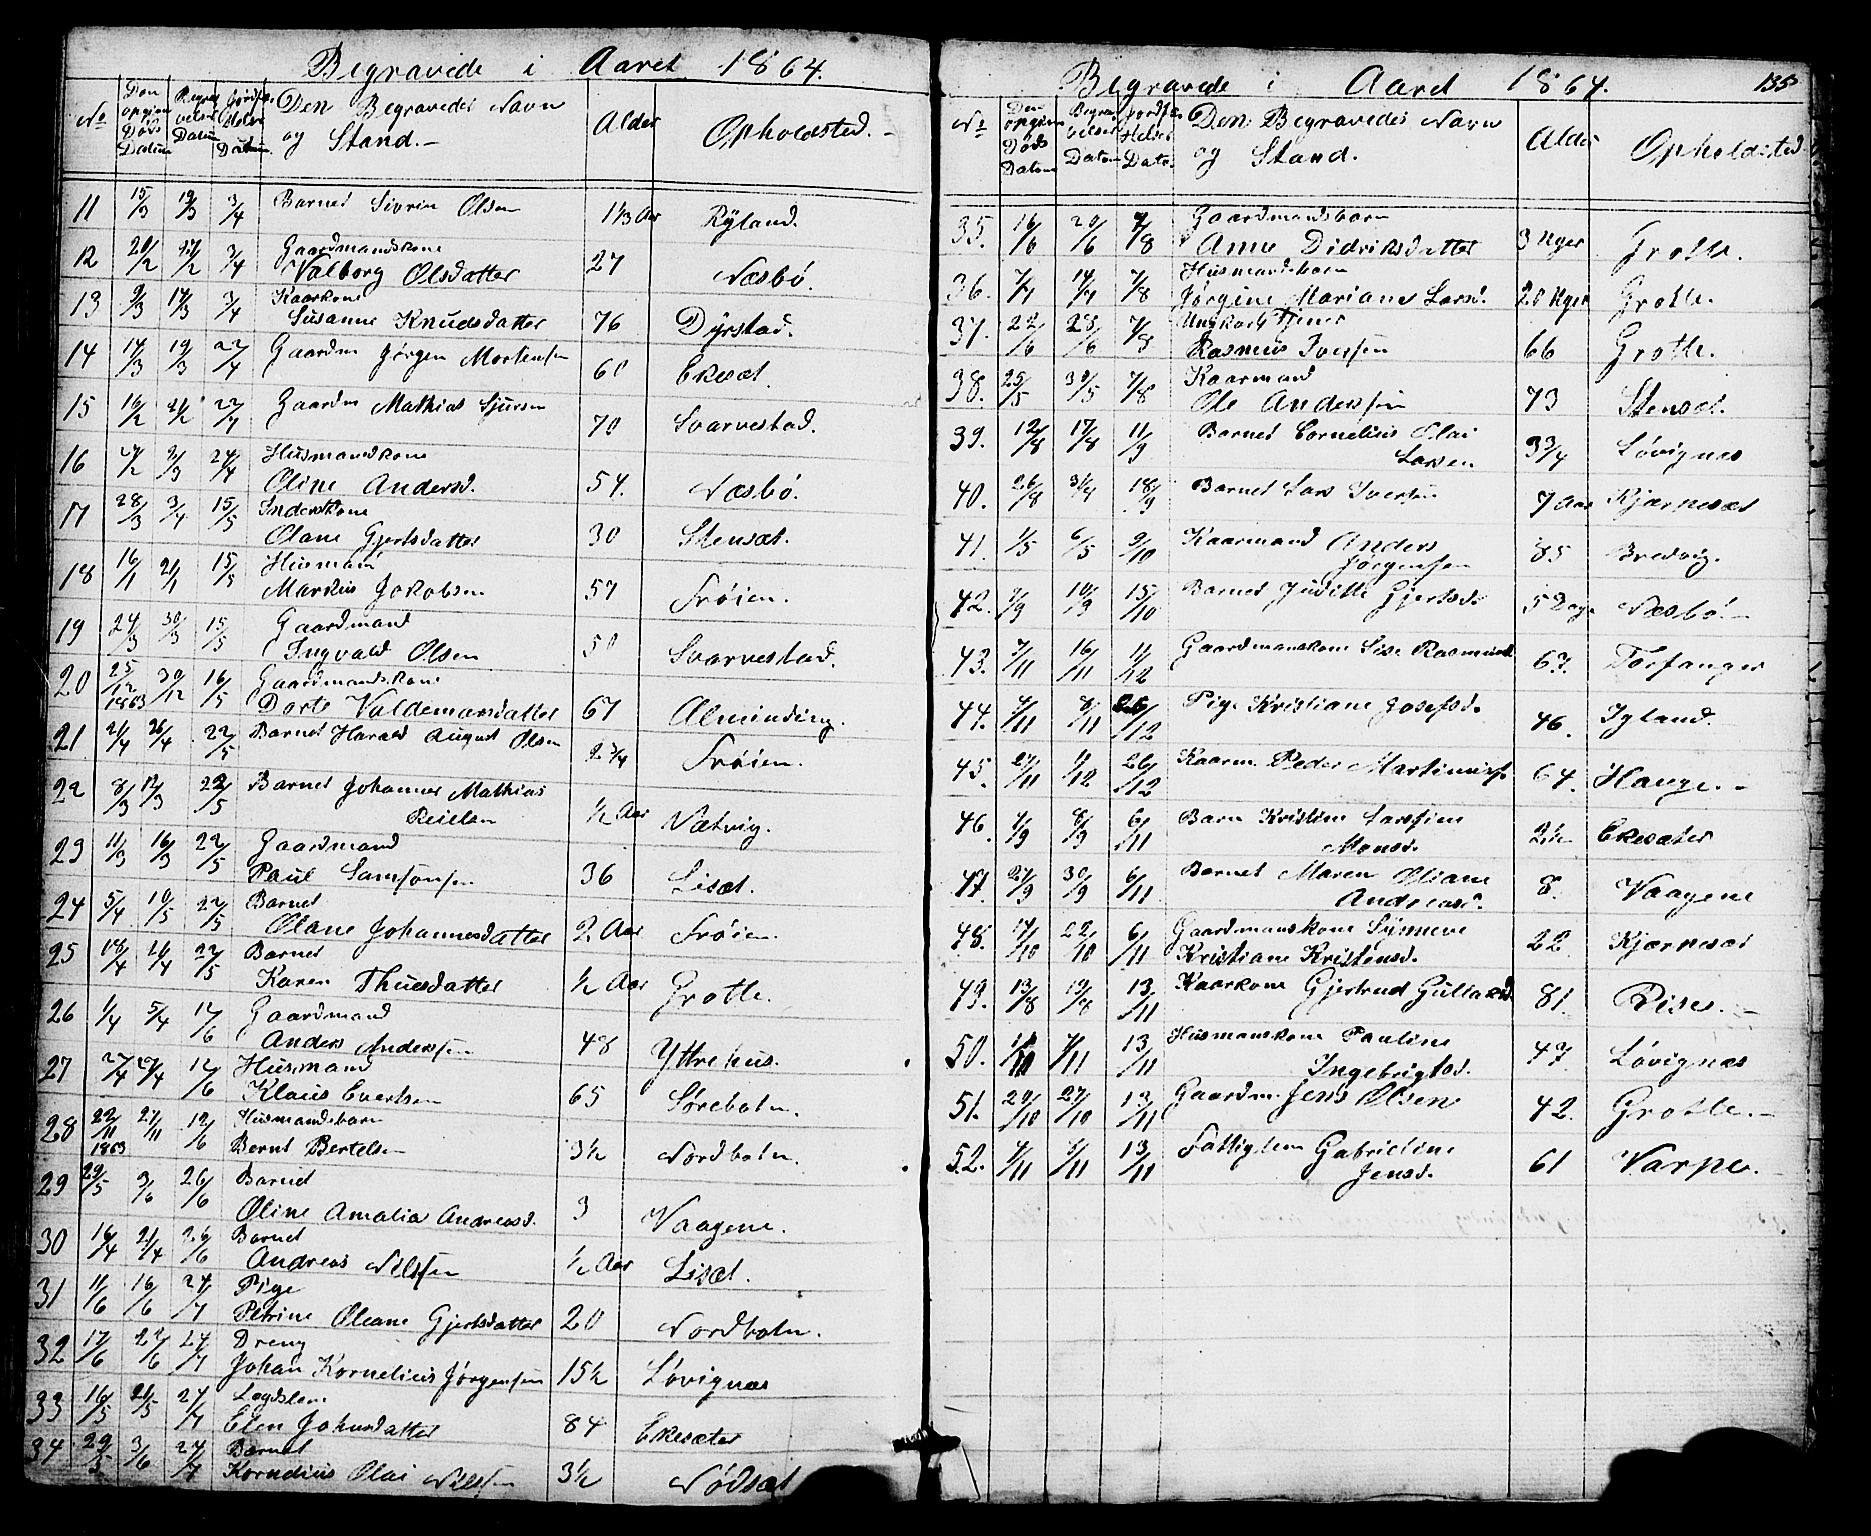 Begravede i Aaret 1864.
No Den opgivne Døds Datum Begravelses Datum Jordfæstelses Datum Den Begravedes Navn og Stand. Alder Opholdsted.
11 15/3 19/3 3/4 Barnet Sivrin Olsen 1 1/3 Aar Ryland.
12 20/2 27/2 3/4 Gaardmandskone
Valborg Olsdatter 27 Næsbö.
13 9/3 17/3 3/4 Kaarkone
Susanne Knudsdatter 76 Dyrstad.
14 14/3 19/3 22/4 Gaardm Jørgen Mortensen 60 Ekesæt.
15 16/2 21/2 22/4 Gaardm Mathias Sjursen 70 Svarvestad.
16 27/2 3/3 24/4 Husmandskone
Oline Andersd. 54. Næsbö.
17 28/3 3/4 15/5 Inderstkone
Olane Gjertsdatter 30 Stensæt.
18 16/1 21/1 15/5 Husman
Markus Jakobsen 57 Frøien.
19 24/3 30/3 15/5 Gaardmand
Ingvald Olsen 50 Svarvestad.
20 25/12 1863 30/12 16/5 Gaardmandskone
Dorte Valdemarsdatter 67 Alminding.
21 21/4 26/4 22/5 Barnet Harald August Olsen 2 3/4 Frøien.
22 8/3 12/3 22/5 Barnet Johannes Mathias
1/2 Aar Natvig.
23 11/3 16/3 22/5 Gaardmand
Paul Samsonsen 36 Lisæt.
24 5/4 10/5 22/5 Barnet
Olane Johannesdatter 2 Aar Frøien.
25 10/4 16/4 22/5 Barnet
Karen Thuesdatter 1/2 Aar Grotte.
26 1/4 5/4 12/6 Gaardmand
Anders Andersen 48 Yttrehus.
27 22/4 27/4 12/6 Husmand
Klaus Evertsen 65 Sørebotn.
28 22/11 1863 27/11 12/6 Husmandsbarn
Bernt Bertelsen 3 1/2 Nordbotn.
29 29/5 3/6 26/6 Barnet
Oline Amalia Andreasd. 3 Vaagene.
30 16/4 21/4 26/6 Barnet
Andreas Nilssen 1/2 Aar Lisæt.
31 11/6 16/6 24/7 Pige
Petrine Oleane Gjertsdatter 20 Nordbotn.
32 17/6 22/6 24/7 Dreng
Johan Kornelius Jørgensen 15 1/2 Løvignæs
33 16/5 21/5 24/7 Lægdslem
Elen Johnsdatter 84 Ekesæter
34 29/5 3/6 24/7 Barnet
Kornelius Olai Nilssen 3 1/2 Nødsæt
Begravede i Aaret 1864. 135
No Den opgivne Døds Datum Begravelses Datum Jordfæstelses Dato. Den Begravedes Navn og Stand. Alder Opholdsted.
35. 16/6 20/6 7/8 Gaardmandsbarn
Anne Didriksdatter 3 Uger Grotte.
36. 7/7 14/7 7/8 Husmandsbarn
Jørgine Mariane Larsd. 20 Uger Grotte.
37. 22/6 28/6 7/8 Ungkarl Tjener
Rasmus Iversen 66 Grotte.
38. 25/5 30/5 7/8 Kaarmand
Ole Anderssen 73 Stensæt.
39. 12/8 17/8 11/9 Barnet Cornelius Olai
Larsen 3 3/4 Løvignæs
40. 26/8 31/8 18/9 Barnet Lars Iversen 7 Aar Kjærnesæt
41. 1/5 6/5 2/10 Kaarmand Anders
Jørgensen 85 Bredvig.
42. 7/9 10/9 15/10 Barnet Juditte Gjertsd. 5 Dage Næsbö.
43. 7/11 16/11 11/12 Gaardmanskone Sise Rasmusd. 63. Torfanger
44. 4/11 8/11 26/12 Pige Kristiane Josefsd. 46. Igland.
45. 27/11 1/12 26/12 Kaarm. Peder Martinus. 64. Hauge.
46. 1/9 8/9 6/11 Barn Kristine
Monsd. 2 1/2 Ekesæter
47. 27/9 30/9 6/11 Barnet Maren Oliane
Andreasd. 8. Vaagene
48. 17/10 22/10 6/11 Gaardmanskone Synneve
Kristiane Kristensd. 22 Kjærnesæt
49. 13/8 19/8 13/11 Kaarkone Gjertrud Gullaksd. 81. Rise.
50. 13/11 Husmanskone Pauline
Ingebrigtsd. 47. Løvignæs
51. 22/10 27/10 13/11 Gaardm. Jens Olsen 42. Grotte.
52. 4/11 13/11 Fattiglem Gabrieline
Jensd. 61 Varpe.